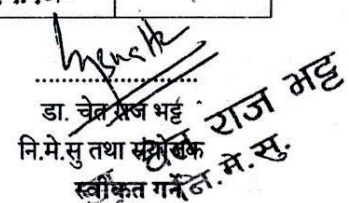 डा. चेत राज भट्ट
नि.मे.सु तथा संयोजक
स्वीकृत गर्ने
राज भट्ट
नि. मे. सु.